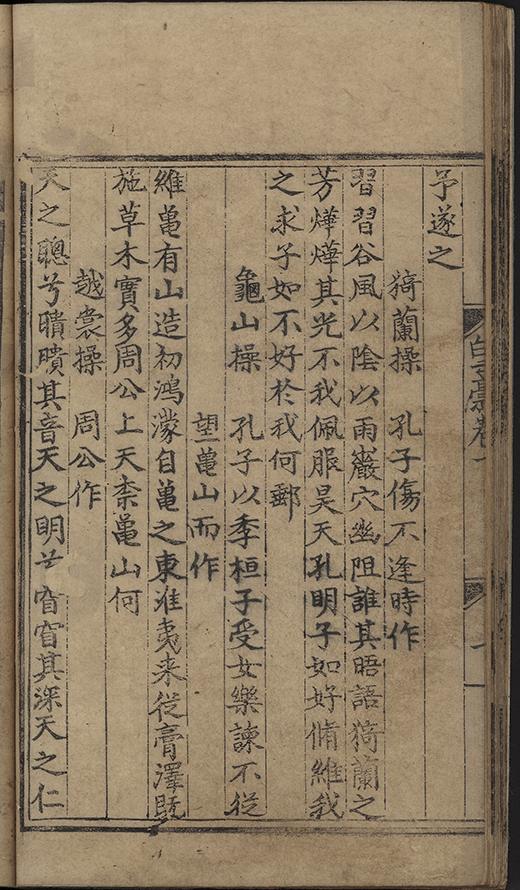 白云藁卷一
一
予遂之
猗蘭操　孔子傷不逢時作
習習谷風以陰以雨巖穴幽阻誰其晤語猗蘭之
芳燁燁其光不我佩服昊天孔明子如好脩維我
之求子如不好於我何郵
龜山操　孔子以季桓子受女樂諫不從
望亀山而作
維亀有山造初鴻濛自亀之東淮夷来從膏澤既
施草木實多周公上天柰亀山何
越裳操　周公作
天之聰兮瞶瞶其音天之明兮窅窅其深天之仁